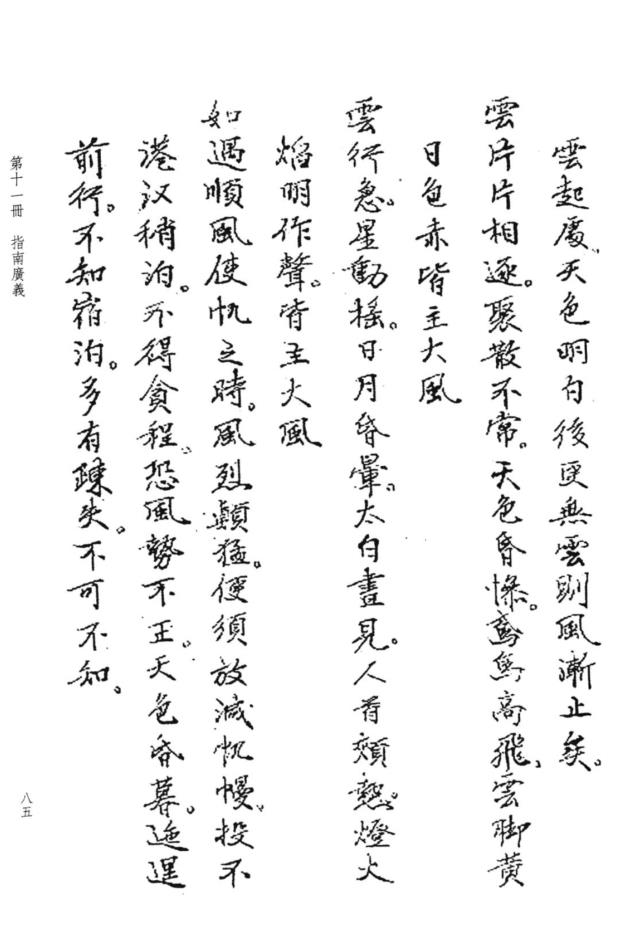 雲起處、天色明白後更無雲則風漸止矣。
雲片片相逐。聚散不常。天色昏慘。鳶鳥高飛、雲脚黄
日色赤皆主大風
雲行急。星動搖。日月昏暈。太白晝見。人首頰熱。燈火
焰明作聲。皆主大風
如遇順風使帆之時。風烈顛猛。便須放減帆幔。投不
港汊稍泊。不得貪程。恐風勢不正。天色昏暮。迤逞
前行。不知宿泊。多有踈失。不可不知。
第十一冊 指南廣義
八五